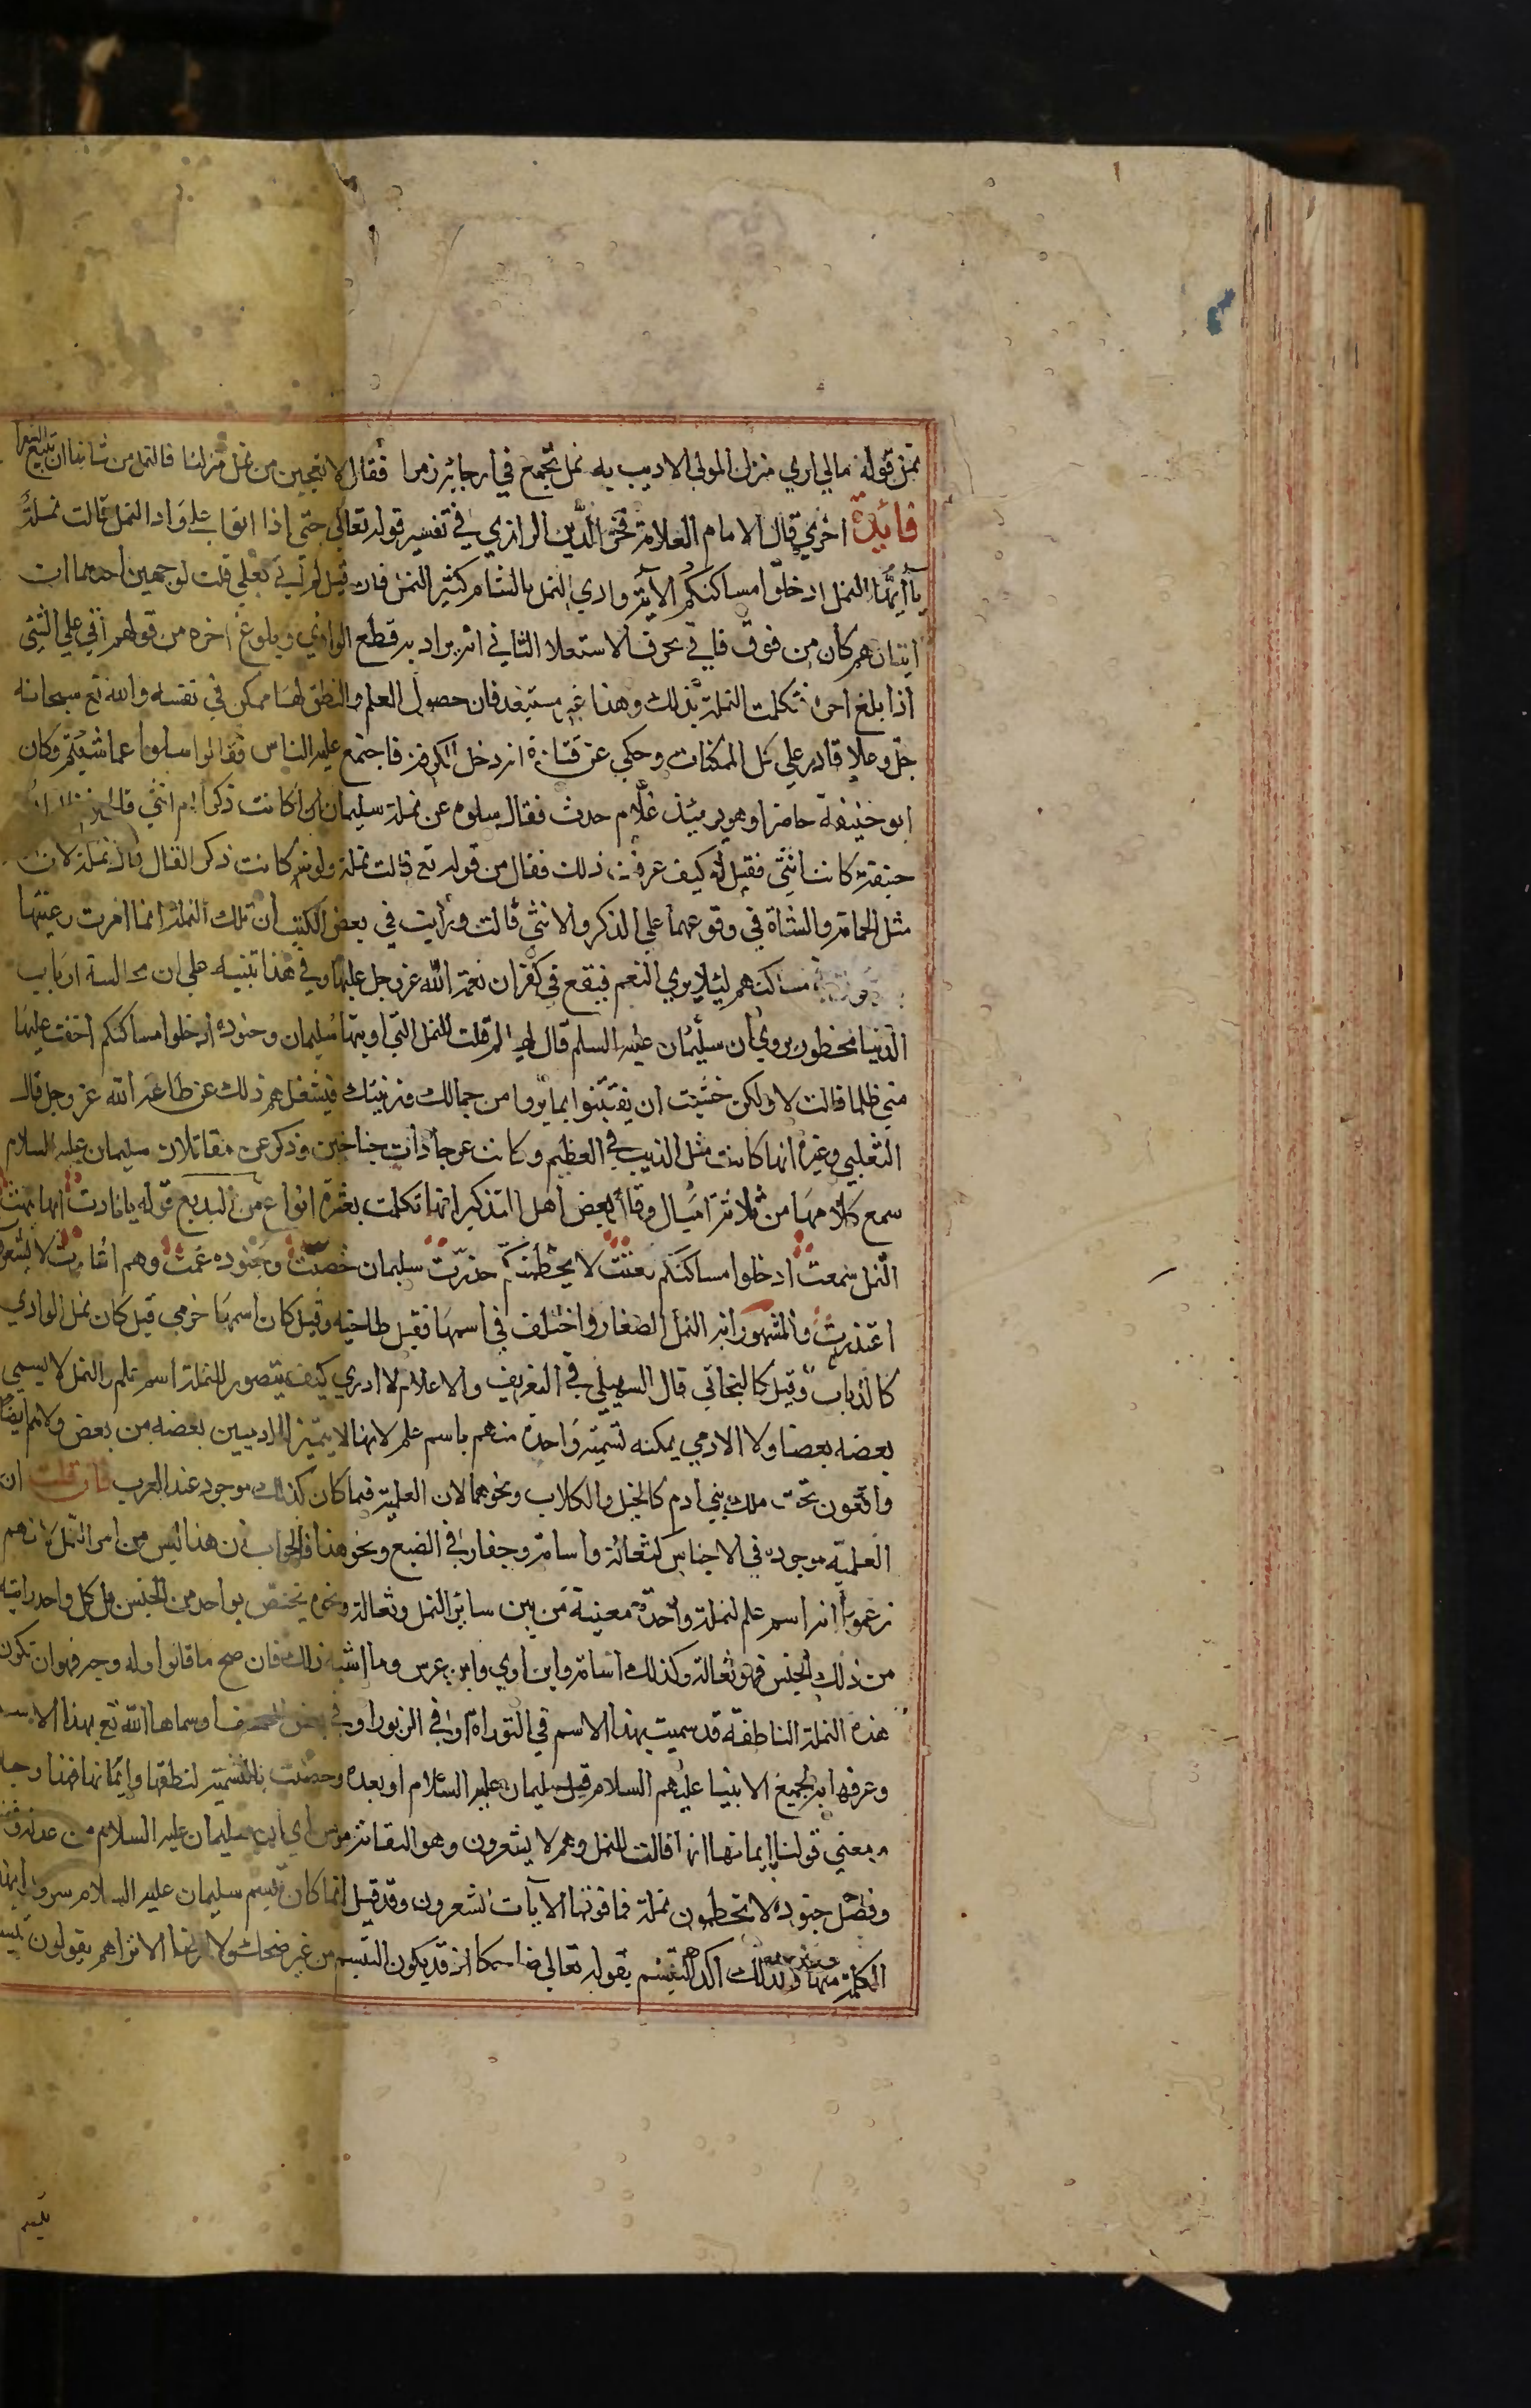 فمن قوله مالي اري منزل المولي الاديب به نمل تجمع في ارجائه زمرا فقال لا تعجبن من نمل منزلنا فالنمل من شانها ان تتبع الشعرا
فائدة اخري قال الامام العلامة فخر الدين الرازي في تفسير قوله تعالي حتي اذا اتوا علي واد النمل قالت نملة
يا ايها النمل ادخلوا مساكنكم الاية وادي النمل بالشام كثير النمل فان قيل لم اتي بعلي قلت لوجهين احدهما ان
اتيانهم كان من فوق فاتي بحرف الاستعلا الثاني انه يراد به قطع الوادي وبلوغ اخره من قولهم اتي علي الشي
اذا بلغ اخره تكلمت النملة بذلك وهذا غير مستبعد فان حصول العلم والنطق لها ممكن في نفسه والله تع سبحانه
جل وعلا قادر علي كل الممكنات وحكي عن قتادة انه دخل الكوفة فاجتمع عليه الناس فقالوا سلوا عما شيتم وكان
ابو حنيفة حاضرا وهو يوميئذ غلام حدث فقال سلوه عن نملة سليمان اكانت ذكرا ام انثي
حنيفة كانت انثي فقيل له كيف عرفت ذلك فقال من قوله تع قالت نملة ولو كانت ذكرا لقال قال نملة لان
مثل الحمامة والشاة في وقوعهما علي الذكر والانثي قالت ورايت في بعض الكتب ان تلك النملة انما امرت رعيتها
مساكنهم ليئلا يري النعم فيقع في كفران نعمة الله عز وجل عليها وفي هذا تنبيه علي ان مجالسة ارباب
الدنيا محظور يروي ان سليمان عليه السلم قال لها لم قلت للنمل سليمان وجنوده ادخلوا مساكنكم اخفت عليها
مني ظلما قالت لا ولكن خشيت ان يفتتنوا بما يروا من جمالك وزينتك فيشغلهم ذلك عن طاعة الله عز وجل قال
الثعلبي وغيره انها كانت مثل الذيب في العظم وكانت عرجا ذات جناحين وذكر عن مقاتل ان سليمان عليه السلام
سمع كلامها من ثلاثة اميال وقال بعض اهل التذكير انها تكلمت بعشرة انواع من البديع قوله يا نادت ايها نبهت
النمل سمعت ادخلوا مساكنكم نعتت لا يحطمنكم حذرت سليمان خصت وجنوده عمت وهم اشارت لا يشعرون
اعتذرت والمشهور انه النمل الصغار واختلف في اسمها فقيل طاخيه وقيل كان اسمها خرمي قيل كان نمل الوادي
كالذباب وقيل كالبخاتي قال السهيلي في التعريف والاعلام لا ادري كيف يتصور للنملة اسم علم والنمل لا يسمي
بعضه بعضا ولا الادمي يمكنه تسمية واحدة منهم باسم علم لانها لا يتميز للادميين بعضه من بعض ولا هم ايضا
واقعون تحت ملك بني ادم كالخيل والكلاب ونحوهما لان العلمية فيما كان كذلك موجود عند العرب فان قلت ان
العلمية موجوده في الاجناس كثعالة واسامة وجعار في الضبع ونحو هذا فالجواب ان هذا ليس من امر النمل لانهم
زعموا انه اسم علم لنملة واحدة معينة من بين سائر النمل وثعالة ونحوه يختص بواحد من الجنس بل كل واحد رايته
من ذلك الجنس فهو ثعالة وكذلك اسامة وابن اوي وابن عرس وما اشبه ذلك فان صح ما قالوا وله وجه فهو ان تكون
هذه النملة الناطقة قد سميت بهذا الاسم في التوراة او في الزبور او في بعض الصحف او سماها الله تع بهذا الاسم
وعرفها به لجميع الانبيا عليهم السلام قبل سليمان عليه السلام او بعده وخصت بالتسمية لنطقها وايمانها فهذا وجه
ومعني قولنا بايمانها انها قالت للنمل وهم لا يشعرون وهو التفاتة مومن اي ان سليمان عليه السلام من عدله وفضله
وفضل جنوده لا يحطمون نملة فما فوقها الا بان لا يشعرون وقد قيل انما كان تبسم سليمان عليه السلام سرورا بهذه
الكلمة منها ولذلك اكد التبسم بقوله تعالي ضاحكا اذ قد يكون التبسم من غير ضحك ولا رضا الا تراهم يقولون تبسم
تبسم